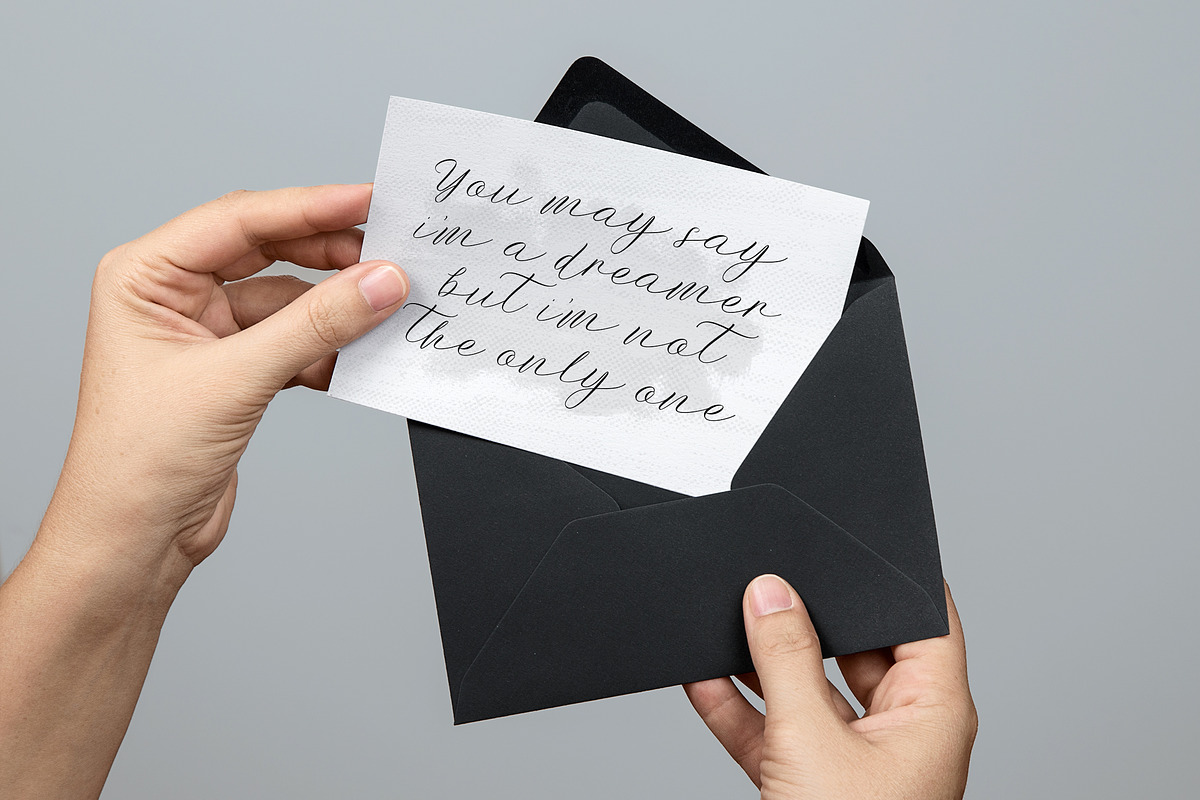 You may say
i'm a dreamer
but i'm not
the only one